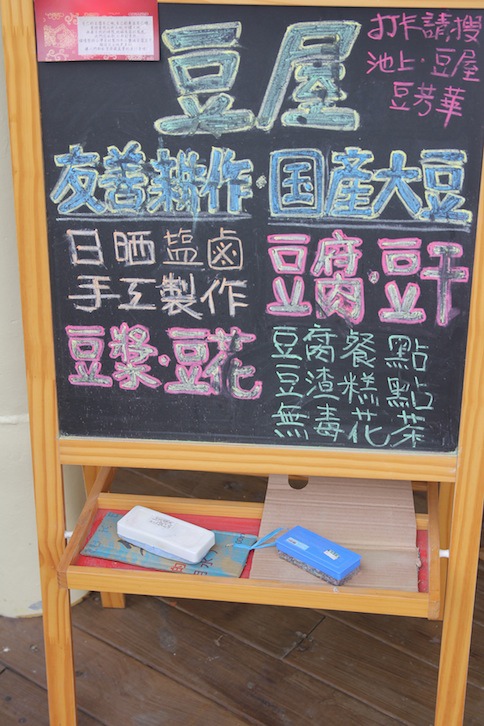 豆屋
打卡請搜
池上·豆屋
豆芳華
友善耕作·国產大豆
日晒塩鹵
手工製作
豆腐·豆干
豆漿·豆花
豆腐餐點
豆渣糕點
無毒花茶